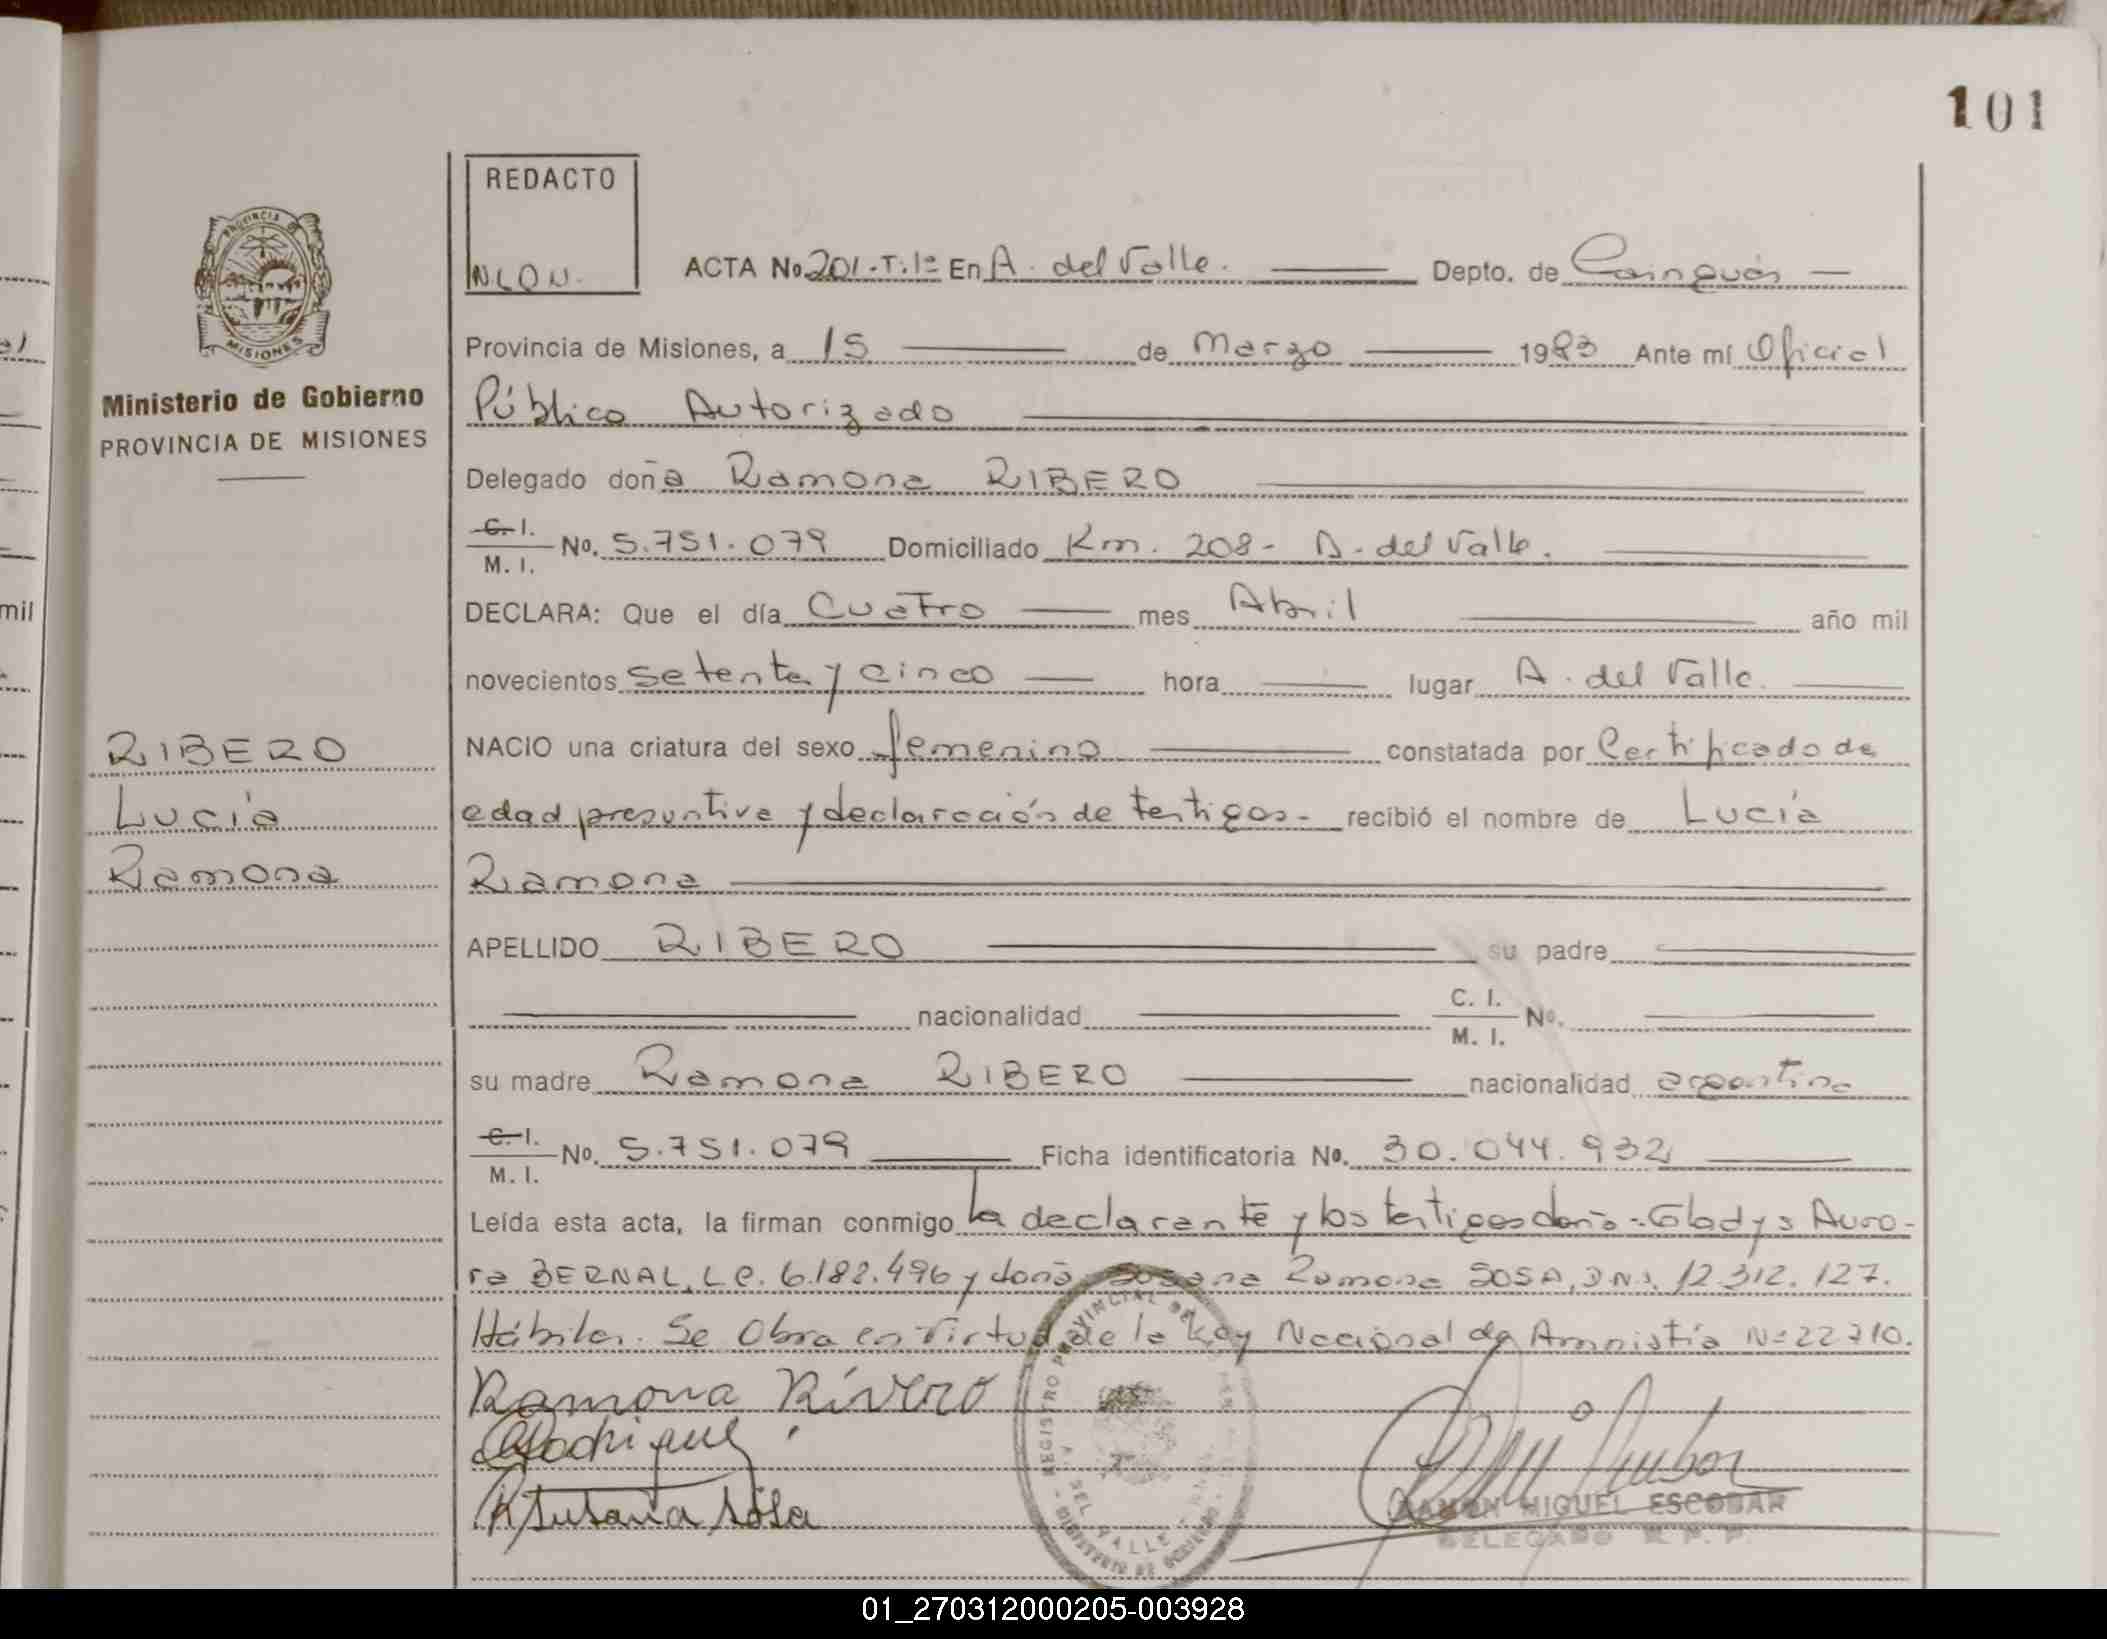 101
REDACTO
NLON.
PROVINCIA
MISIONES
Ministerio de Gobierno
PROVINCIA DE MISIONES
ACTA No 201.T.1º En A. del Valle. Depto. de Cainguás
Provincia de Misiones, a 15 de Marzo 1983 Ante mí Oficial
Público Autorizado
Delegado doña Ramona RIBERO
C. I.
M. I.
No. 5.751.079 Domiciliado Km. 208- A. del Valle.
DECLARA: Que el día Cuatro mes Abril año mil
novecientos setenta y cinco hora lugar A. del Valle.
NACIO una criatura del sexo femenino constatada por Certificado de
edad presuntiva y declaración de testigos- recibió el nombre de Lucía
Ramona
RIBERO
Lucía
Ramona
APELLIDO RIBERO su padre
nacionalidad C. I. M. I. No.
su madre Ramona RIBERO nacionalidad argentina
C. I.
M. I.
No. 5.751.079 Ficha identificatoria No. 30.044.932
Leída esta acta, la firman conmigo la declarante y los testigos doña-Gladys Auro-
ra BERNAL, L.C. 6.182.496 y doña Susana Ramona SOSA, D.N.I. 12.312.127.
Hábiles. Se Obra en virtud de la Ley Nacional de Amnistía Nº 22710.
Ramona Rivero
R Susana Sosa
REGISTRO PROVINCIAL DE LAS PERSONAS
A. DEL VALLE
MINISTERIO DE GOBIERNO
RAMON MIGUEL ESCOBAR
DELEGADO R. P. P.
mil
01_270312000205-003928